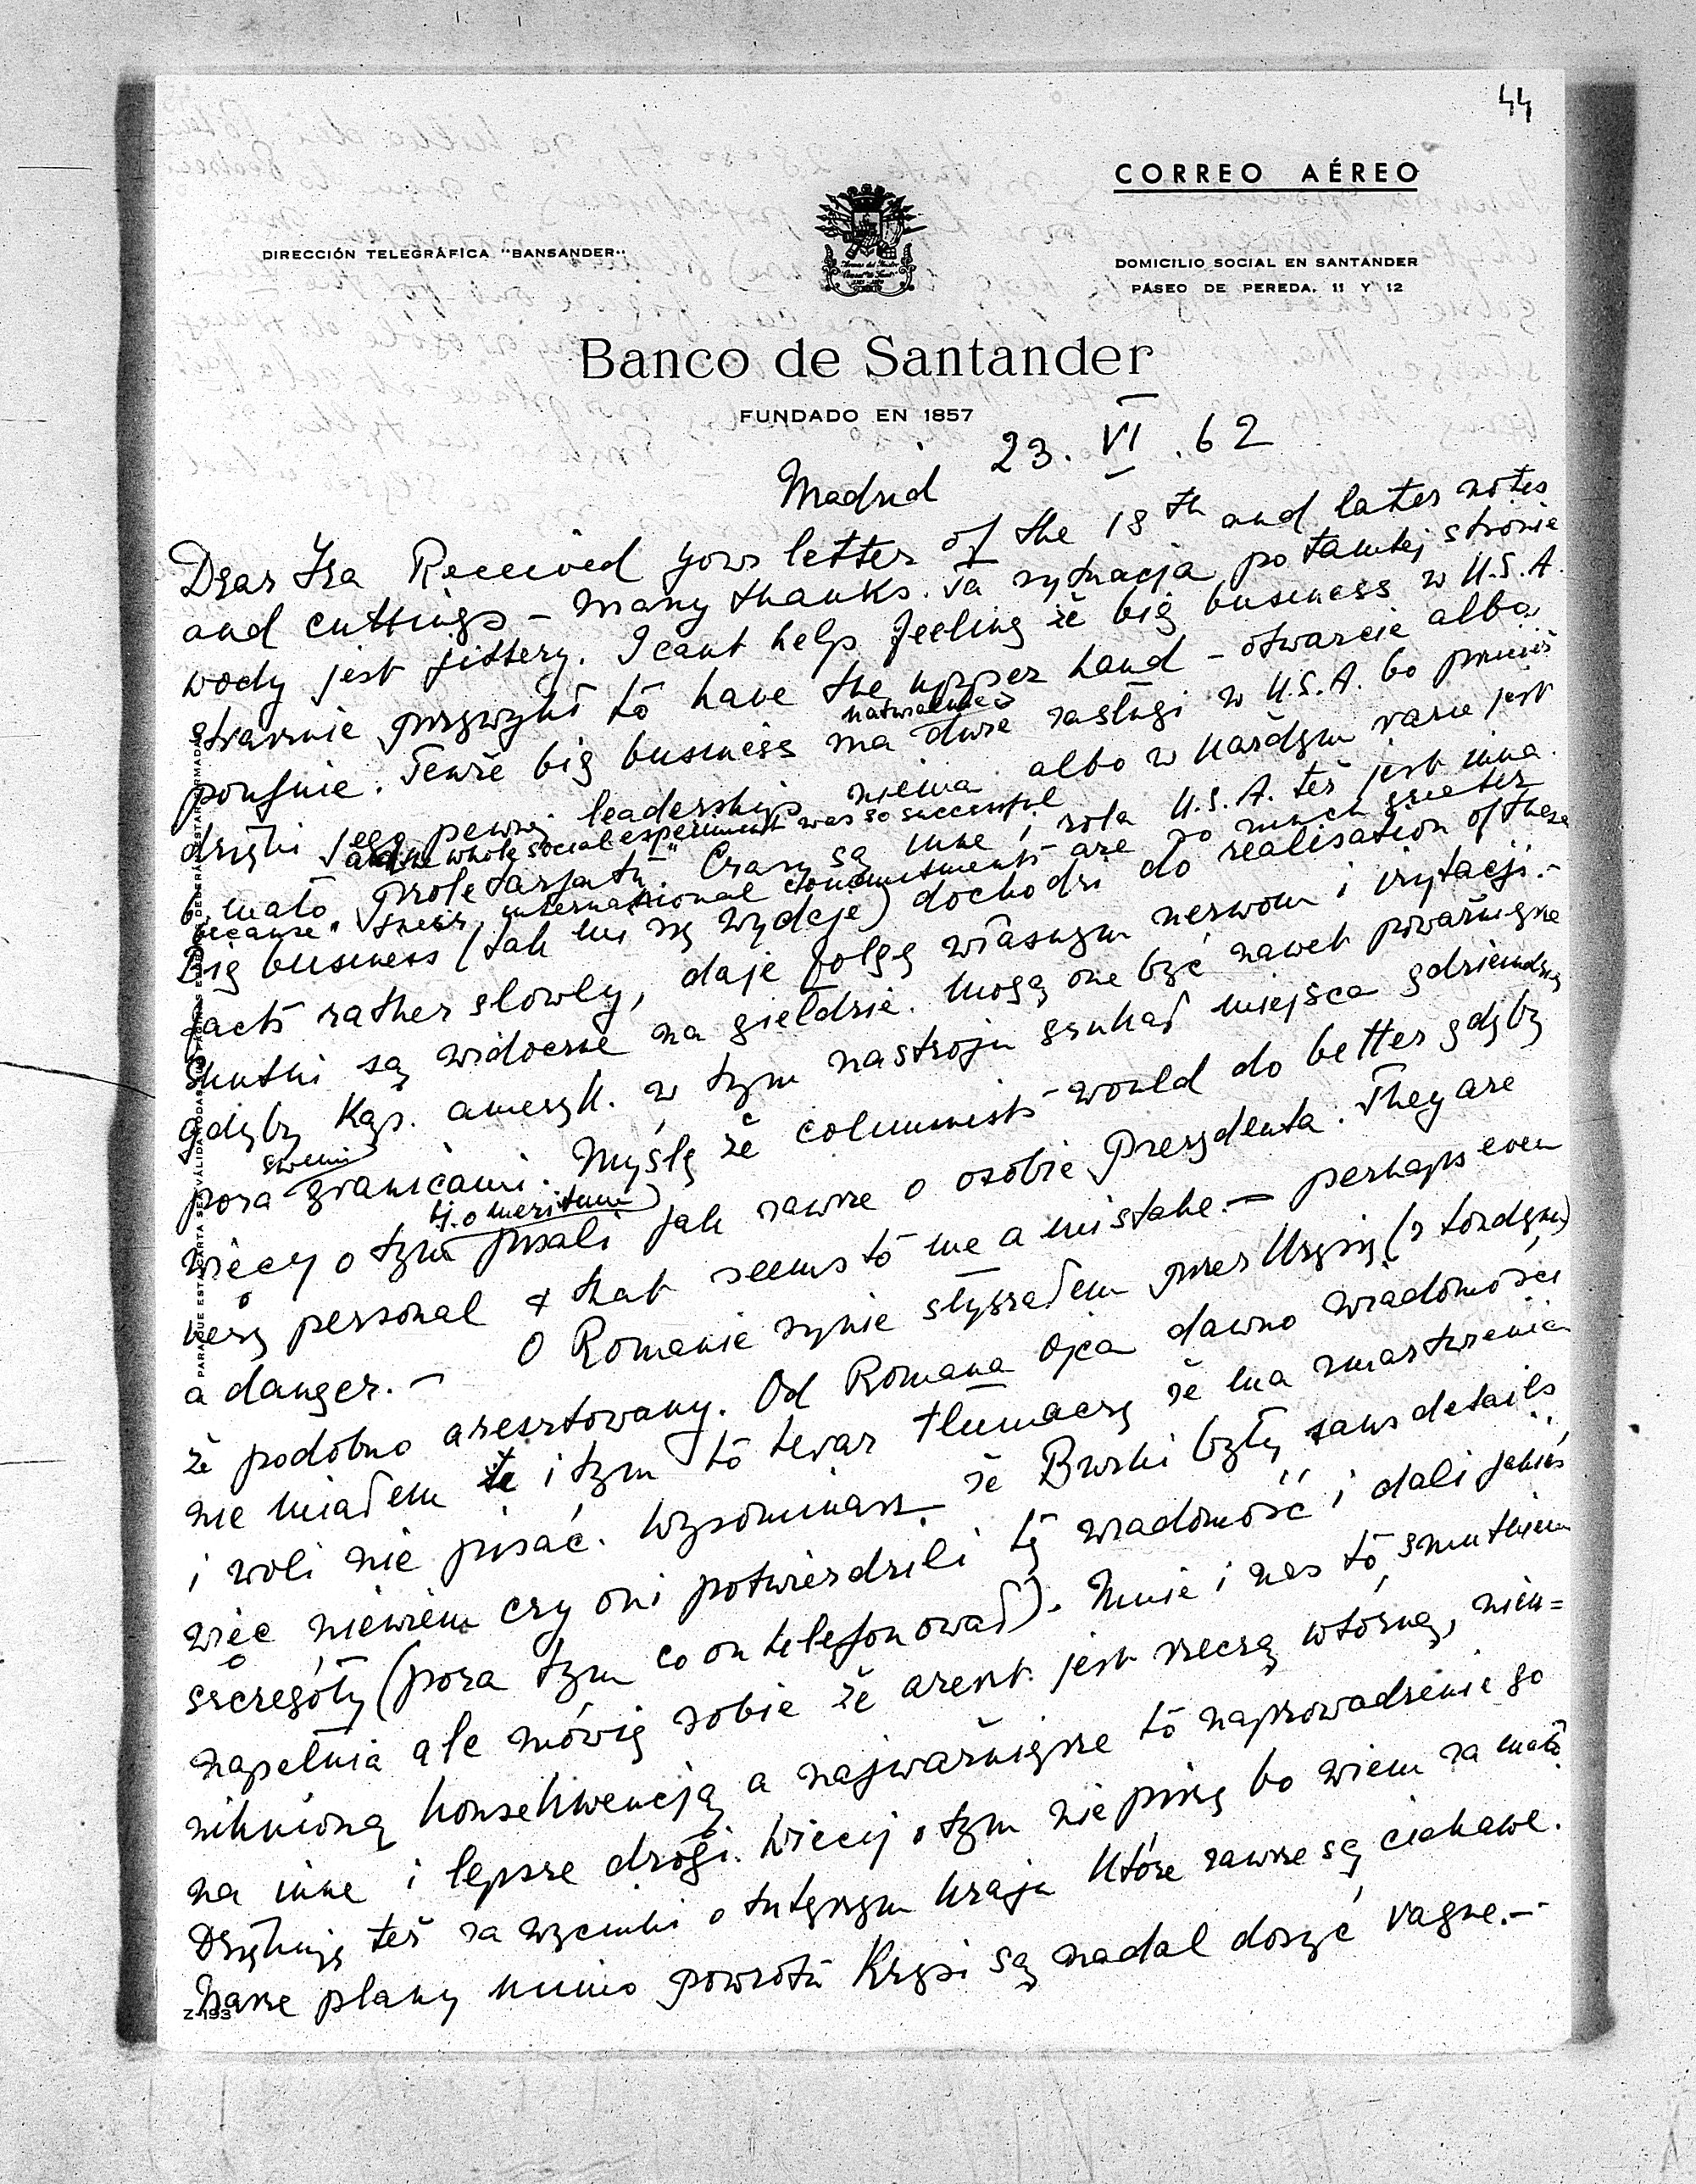 44
CORREO AÉREO
DIRECCIÓN TELEGRÁFICA "BANSANDER"
DOMICILIO SOCIAL EN SANTANDER
PASEO DE PEREDA, 11 Y 12
Banco de Santander
FUNDADO EN 1857
Madrid 23. VI. 62
Dear Iza Received your letter of the 18th and later notes
and cuttings – many thanks. Ta sytuacja po tamtej stronie
wody jest jittery. I cant help feeling że big business w U.S.A.
strasznie przywykł to have the upper hand – otwarcie albo
poufnie. Tenże big business ma naturalnie duże zasługi w U.S.A. bo przecież
dzięki jego pewnej leadership niema albo w każdym razie jest
b. mało "proletarjatu" and the whole social experiment was so successful. Czasy są inne i rola U.S.A. też jest inna
because their international commitments are so much greater
Big business (tak mi się wydaje) dochodzi do realisation of these
facts rather slowly, daje folgę własnym nerwom i irytacji. –
Skutki są widoczne na giełdzie. Mogą one być nawet poważniejsze
gdyby kap. ameryk. w tym nastroju szukał miejsca gdzieindziej
poza swemi granicami. Myślę że columnists would do better gdyby
więcej o tym tj. o meritum pisali jak zawsze o osobie Prezydenta. They are
very personal & that seems to me a mistake. – perhaps even
a danger. – O Romanie synie słyszałem przez Krysię (z Londynu)
że podobno aresztowany. Od Romana ojca dawno wiadomości
nie miałem i tym to teraz tłumaczę że ma zmartwienia
i woli nie pisać. Wspominasz że Burski były sans details
więc niewiem czy oni potwierdzili tę wiadomość i dali jakieś
szczegóły (poza tym co on telefonował). Mnie i nas to smutkiem
napełnia ale mówię sobie że areszt. jest rzeczą wtórną, nieu=
niknioną konsekwencją a najważniejsze to naprowadzenie go
na inne i lepsze drogi. Więcej o tym nie piszę bo wiem za mało.
Dziękuję też za wycinki o tutejszym kraju które zawsze są ciekawe.
Nasze plany mimo powrotu Krysi są nadal dosyć vague. –
Z-193